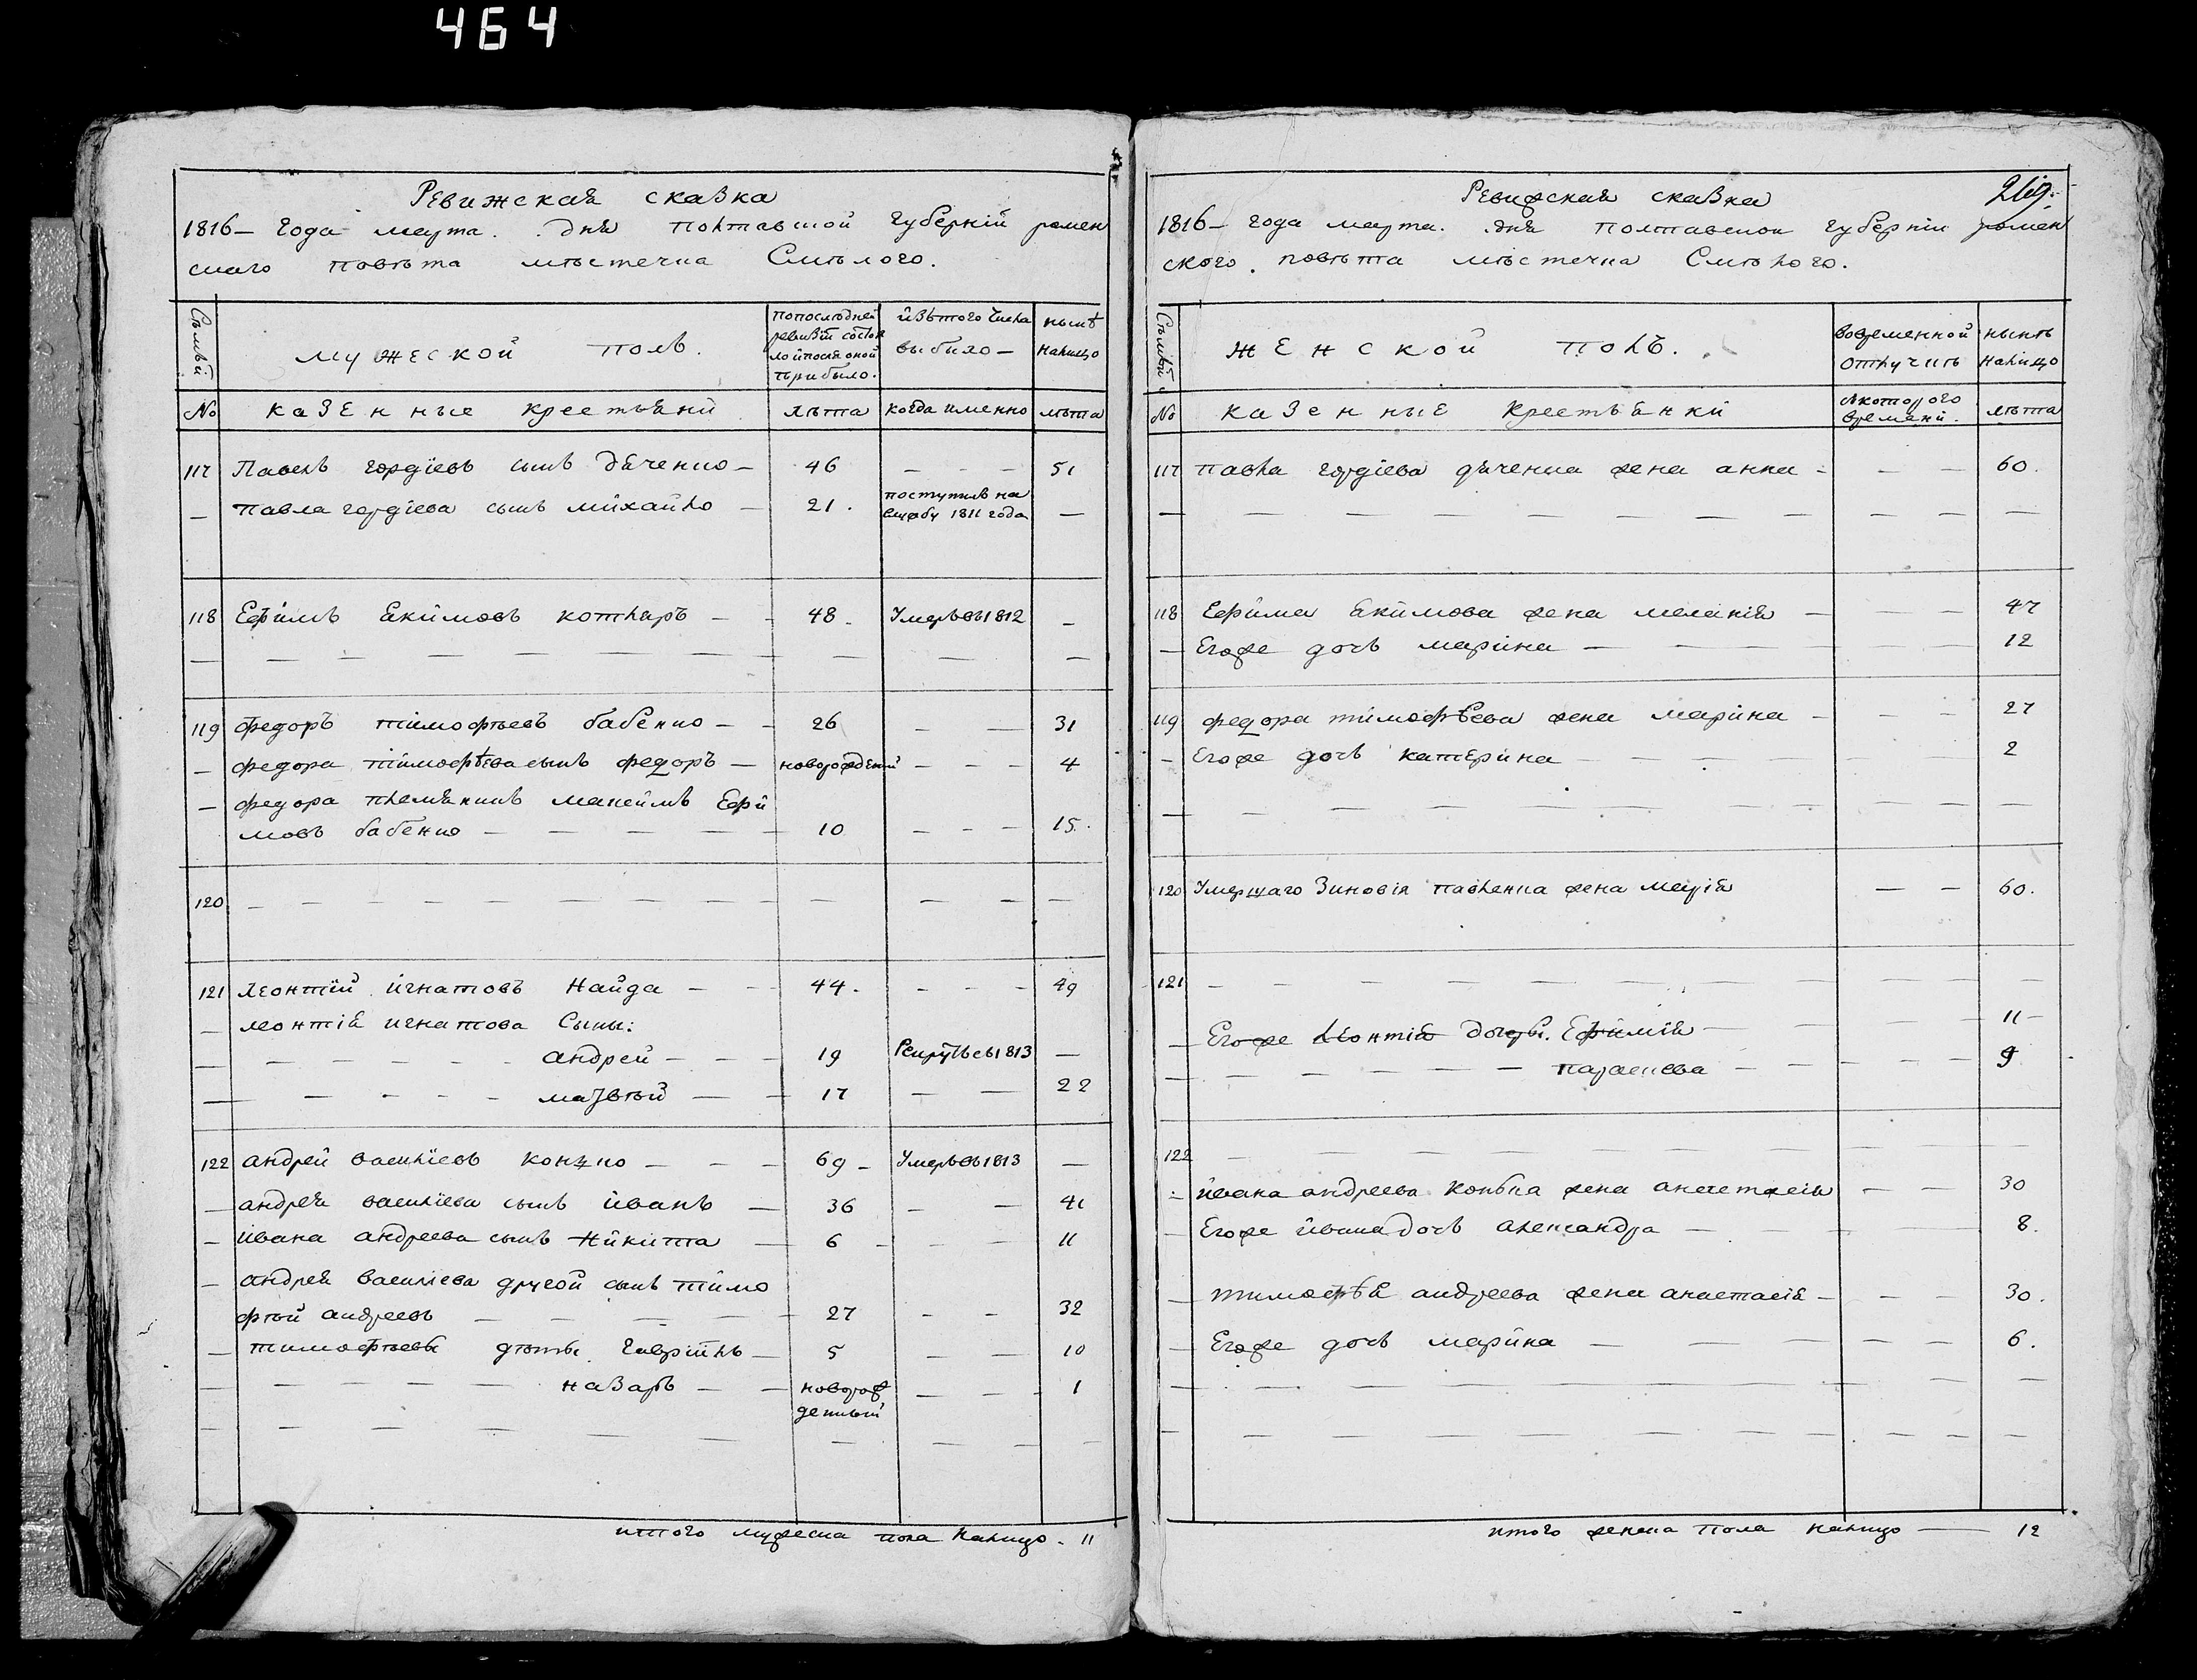 464
Ревижская сказка
1816 – года марта . . дня полтавской губерній ромен
скаго повѣта мѣстечка Смѣлого.
Сѣмьи
мужеской полъ.
попослѣдней
ревизіи состоя
ло ипосля оной
прибыло.
йзътого числа
выбыло –
нынѣ
налицо
№ казенные крестьяни лѣта когда именно лѣта
117 Павелъ гордіевъ сынъ дяченко – 46 – – – 51
– павла гордіева сынъ михайло – 21. поступилъ на
службу 1811 года –
118 Ефимъ Екимовъ котляръ – – 48. Умеръвъ1812 –
119 федоръ тимофѣевъ бабенко – – 26 – – 31
– федора тимофѣева сынъ федоръ – новорожденій – – – 4
– федора племянникъ максимъ Ефи
мовъ бабенко – – – – – 10 – – – 15.
120 – – – – – – – – – –
121 леонтій игнатовъ Найда – – 44. – – – 49
– леонтія игнатова Сыны:
– – – – – – андрей – – – 19 Рекрутъвъ1813 –
– – – – – матвѣй – – 17 – – 22
122 андрей василіевъ – – – 69 – Умеръвъ1813 –
– андрея василіева сынъ йванъ – 36 – – 41
– йвана андреева сынъ Никита – 6 – – – 11
– андрея василіева другой сынъ тимо
фѣй андреевъ – – – – – 27 – – 32
– тимофѣевы дѣты гаврійлъ – 5 – – 10
– – – – – – назаръ – – новорож
денный – – – 1
итого мужеска пола налицо – 11
Ревижская сказка
219.
1816 – года марта. дня полтавской губерніи ромен
ского. повѣта мѣстечка Смѣлого.
Сѣмьи
женской полъ.
вовременной
отлучкѣ
нынѣ
налицо
№ казенные крестьянки
скоторого
времени.
лѣта
117 павла гордіева дяченка жена анна – – – 60.
118 Ефима Екимова жена меланія – – – 47
– Егоже дочь марина – – – – 12
119 федора тимофѣева жена марина – – – 27
– Егоже дочь катерина – – – – 2
120 Умершаго Зиновія павленка жена марія – – 60.
121 – – – – – – – – –
– Егоже Леонтія дочеры. Ефимія – – – 11 –
– – – – – – – параскева – – – – 9
122 – – – – – – – –
– йвана андреева жена анастасія – – 30
– Егоже йвана дочь александра – – – 8.
– тимофѣя андреева жена анастасія – – – 30.
– Егоже дочь марина – – – – 6.
итого женска пола налицо – 12